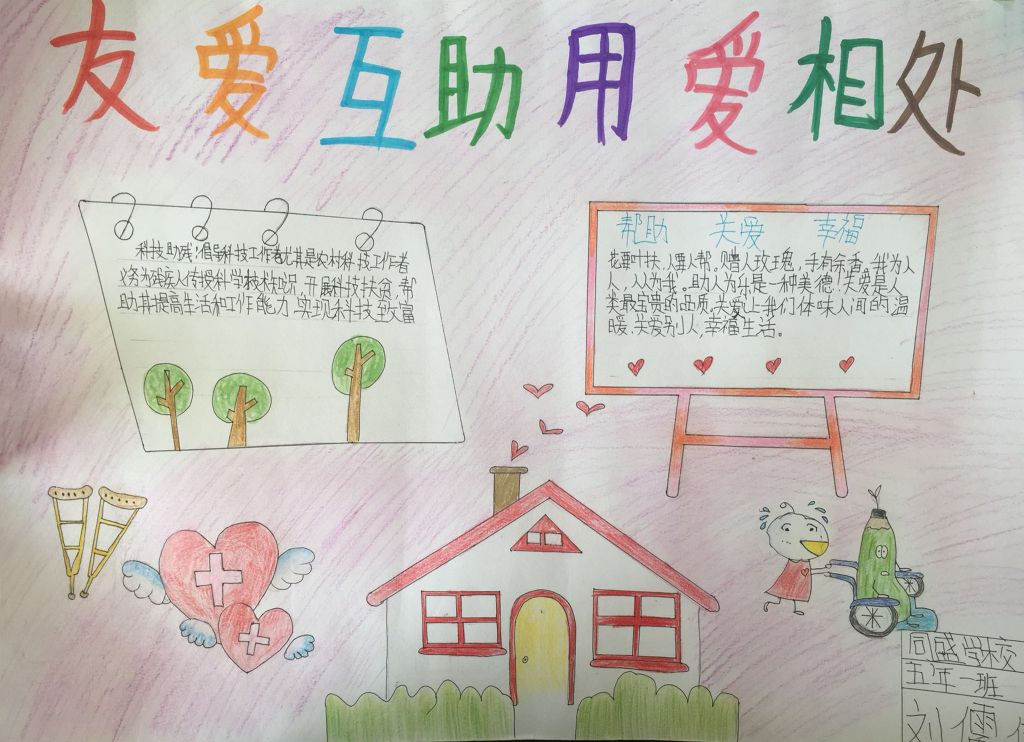 友爱互助用爱相处
科技助残：倡导科技工作者尤其是农村科技工作者
义务为残疾人传授科学技术知识，开展科技扶贫，帮
助其提高生活和工作能力，实现科技致富
帮助 关爱 幸福
花要叶扶，人要人帮。赠人玫瑰，手有余香。我为人
人，人人为我。助人为乐是一种美德！关爱是人
类最宝贵的品质。关爱让我们体味人间的温
暖。关爱别人，幸福生活。
同盛学校
五年一班
刘儒